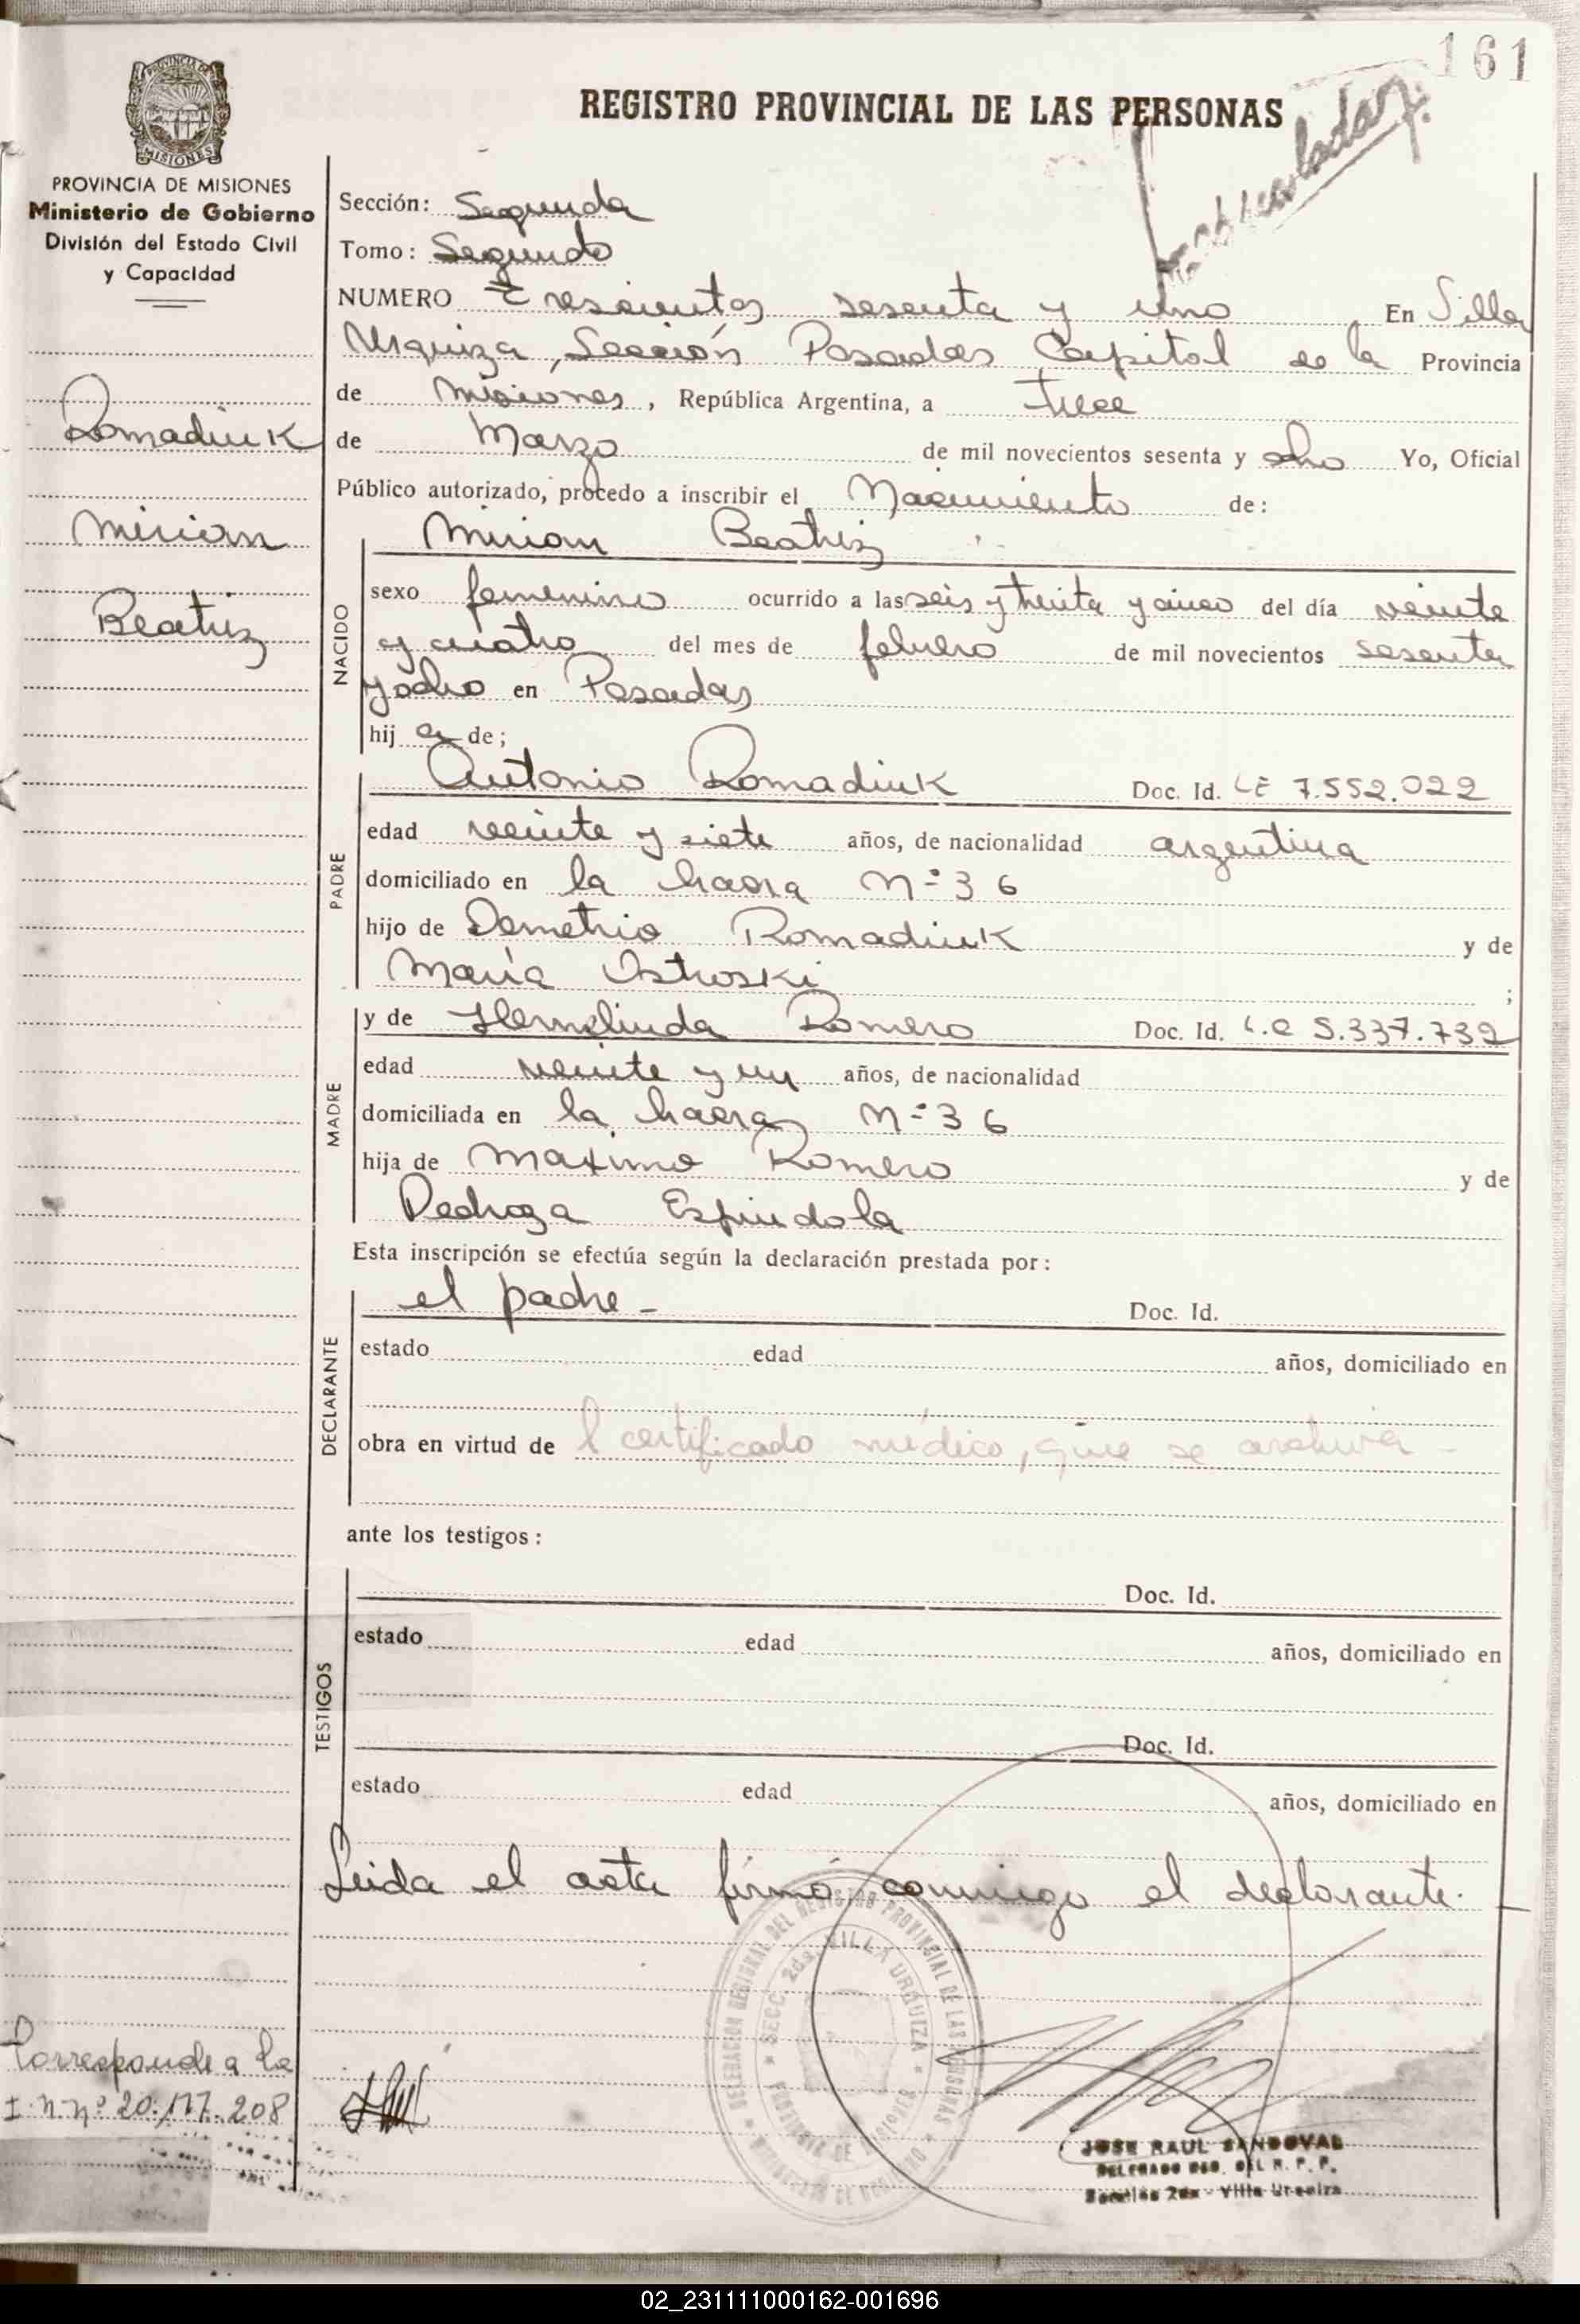 161
REGISTRO PROVINCIAL DE LAS PERSONAS
PROVINCIA DE MISIONES
MISIONES
PROVINCIA DE MISIONES
Ministerio de Gobierno
División del Estado Civil
y Capacidad
Romadiuk
Mirian
Beatriz
Sección: Segunda
Tomo: Segundo
NUMERO Trescientos sesenta y uno En Villa
Urquiza, Sección Posadas Capital de la Provincia
de Misiones, República Argentina, a trece
de Marzo de mil novecientos sesenta y ocho Yo, Oficial
Público autorizado, procedo a inscribir el Nacimiento de:
Mirian Beatriz
NACIDO
sexo femenino ocurrido a las seis y treinta y cinco del día veinte
y cuatro del mes de febrero de mil novecientos sesenta
y ocho en Posadas
hij a de;
PADRE
Antonio Romadiuk Doc. Id. LE 7.552.022
edad veinte y siete años, de nacionalidad argentina
domiciliado en la hacra Nº 36
hijo de Demetrio Romadiuk y de
María Ostroski ;
MADRE
y de Hermelinda Romero Doc. Id. L.C 5.337.732
edad veinte y un años, de nacionalidad
domiciliada en la hacra Nº 36
hija de Maximo Romero y de
Pedroza Espindola
Esta inscripción se efectúa según la declaración prestada por:
DECLARANTE
el padre - Doc. Id.
estado edad años, domiciliado en
obra en virtud de l certificado médico, que se archiva -
ante los testigos:
TESTIGOS
Doc. Id.
estado edad años, domiciliado en
Doc. Id.
estado edad años, domiciliado en
Leida el acta firmó conmigo el declarante. -
DELEGACION REGIONAL DEL REGISTRO PROVINCIAL DE LAS PERSONAS
SECC. 2da. VILLA URQUIZA
PROVINCIA DE MISIONES
Corresponde a la
I n nº 20.177.208
JOSE RAUL SANDOVAL
DELEGADO REG. DEL R. P. P.
Sección 2da - Villa Urquiza
02_231111000162-001696